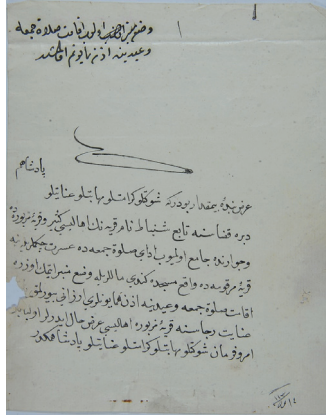 وضع منبر اولنوب اقامت صلاة جمعه
وعيدينه اذن همايونم اولمشدر
پادشاهم
عرض بنده بيمقدار بودركه شوكتلو كرامتلو مهابتلو عنايتلو
دبره قضاسنه تابع نام قريه نك اهاليسى كثير وقريه مزبورده
وجوارنده جامع اولميوب اداى صلوة جمعه ده عسرت
قريه مرقومه ده واقع مسجده كندى ماللريله وضع منبر ايتمك اوزره
اقامت صلوة جمعه وعيدينه اذن همايونلرى ارزانى بيورلمق
عنايت رجاسنه قريه مزبوره اهاليسى عرض حال ايدرلر
امر وفرمان شوكتلو مهابتلو كرامتلو عنايتلو پادشاهمكدر